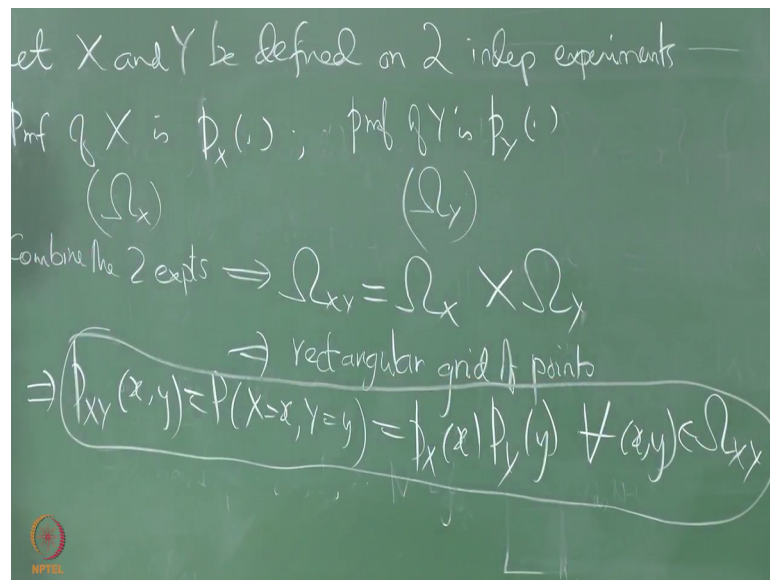 et X and Y be defined on 2 indep experiments —
Pmf of X is p_X(.) ; pmf of Y is p_Y(.)
(Ω_X) (Ω_Y)
Combine the 2 expts ⇒ Ω_XY = Ω_X × Ω_Y
⇒ rectangular grid of points
⇒ p_XY(x,y) = P(X=x, Y=y) = p_X(x) p_Y(y) ∀ (x,y) ∈ Ω_XY
NPTEL